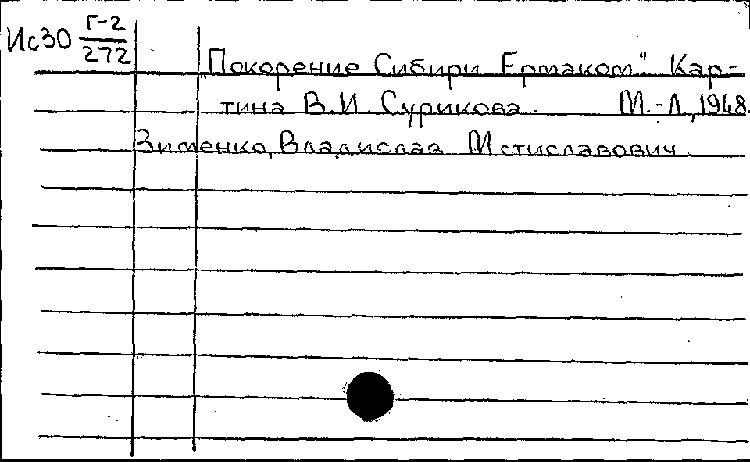 Ис30 Г-2
272
"Покорение Сибири Ермаком" Кар-
тина В.И. Сурикова. М.-Л., 1948.
Зименко, Владислав Мстиславович